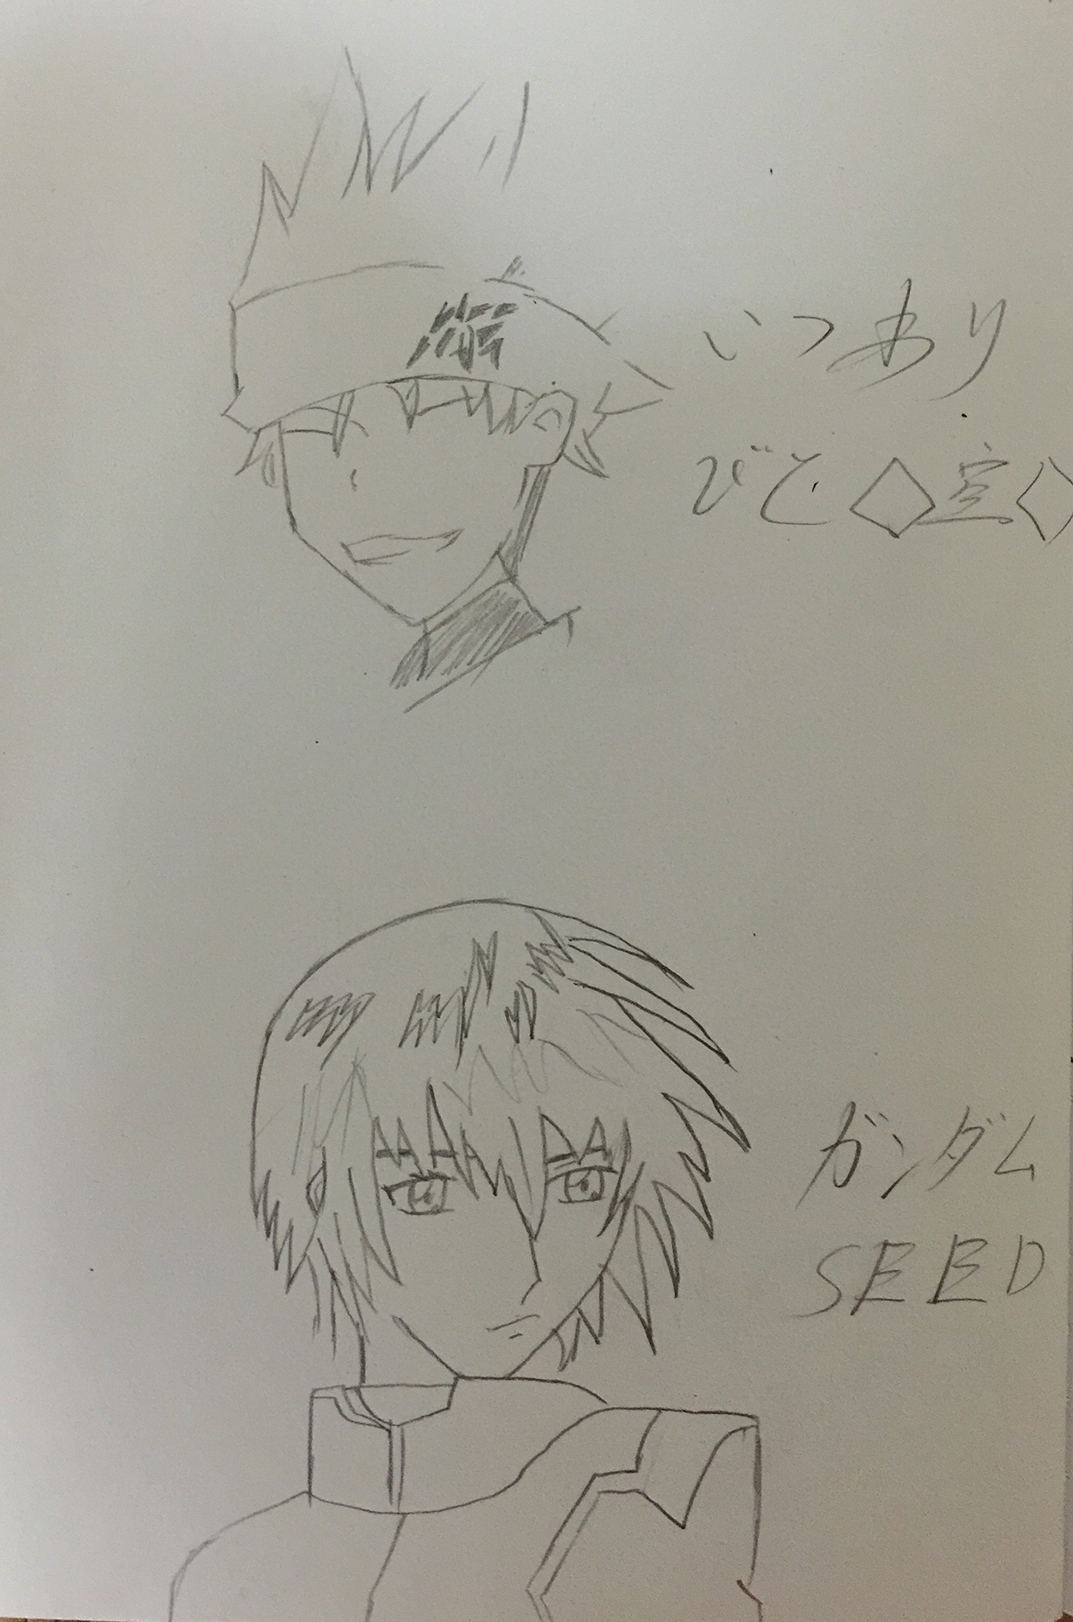 いつわり
びと◇空◇
ガンダム
SEED